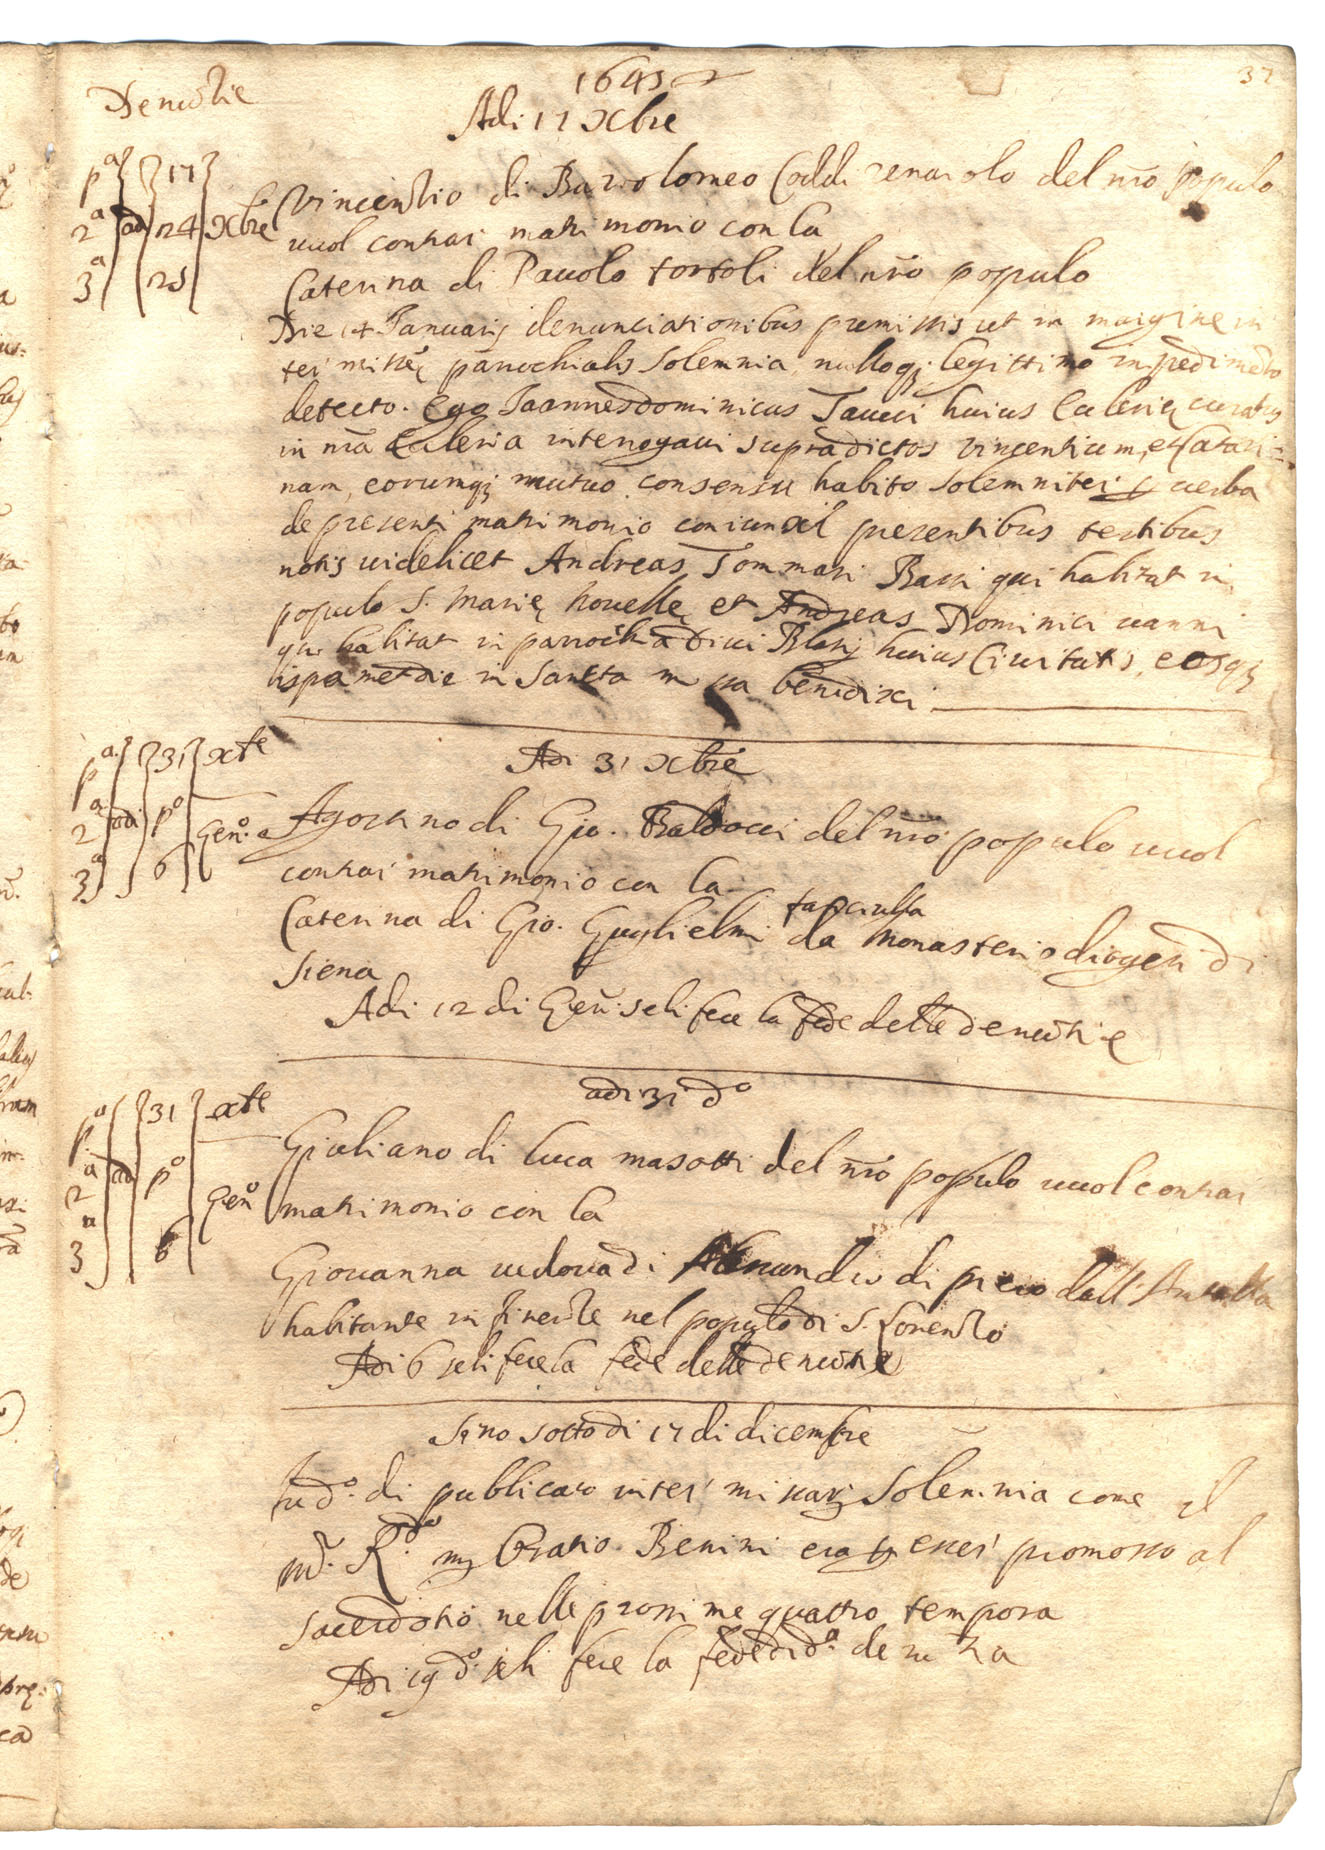 37
1643
Denuñtie
Adi 17 Xbre
pª adi 17
2ª 24 Xbre
3ª 25
Vincentio di Bartolomeo Coddi renaiolo del nr̃o populo
vuol contrar matrimonio con la
Caterina di Pavolo tortoli del nr̃o populo
Die 14 Januarij denunciationibus premissis ut in margine in
ter missę parrochialis solemnia, nulloq; legittimo inpedim̃to
detecto. Ego Joannesdominicus Taucci huius Eclesię curatus
in nr̃a Eclesia interrogavi supradictos Vincentium, et Catari=
nam, eorumq; mutuo consensu habito solemniter p verba
de presenti matrimonio coniunxi presentibus testibus
notis videlicet Andreas Tommasi Bassi qui habitat in
populo S. Marię Novellę et Andreas Dominici vanni
qui habitat in parrochia Divi Blasij huius Civitatis, eosq;
ispamet die in Sancta missa benedixi
pª adi 31 Xbre
2ª pº Genº
3ª 6
Adi 31 Xbre
Agostino di Gio. Baldocci del nr̃o populo vuol
contrar matrimonio con la
fanciulla
Caterina di Gio. Guglielmi da Monasterio diogeri di
Siena
Adi 12 di Geñ: seli fece la fede delle denuñtie
pª adi 31 Xbre
2ª pº Genº
3ª 6
adi 31 dº
Giuliano di Luca masotti del nr̃o populo vuol contrar
matrimonio con la
Giovanna vedova di di piero dall'Antella
habitante in firenze nel populo di S. Lorenzo
Adi 6 seli fece la fede delle denuñtie
Sino sotto di 17 di dicembre
fu dº. di publicaro inter missarũ solemnia come il
m. Rdo. mr Oratio Benini era p esser promosso al
sacerdotio nelle prossime quattro tempora
Adi 19 dº. seli fece la fede di dª. denuñtia